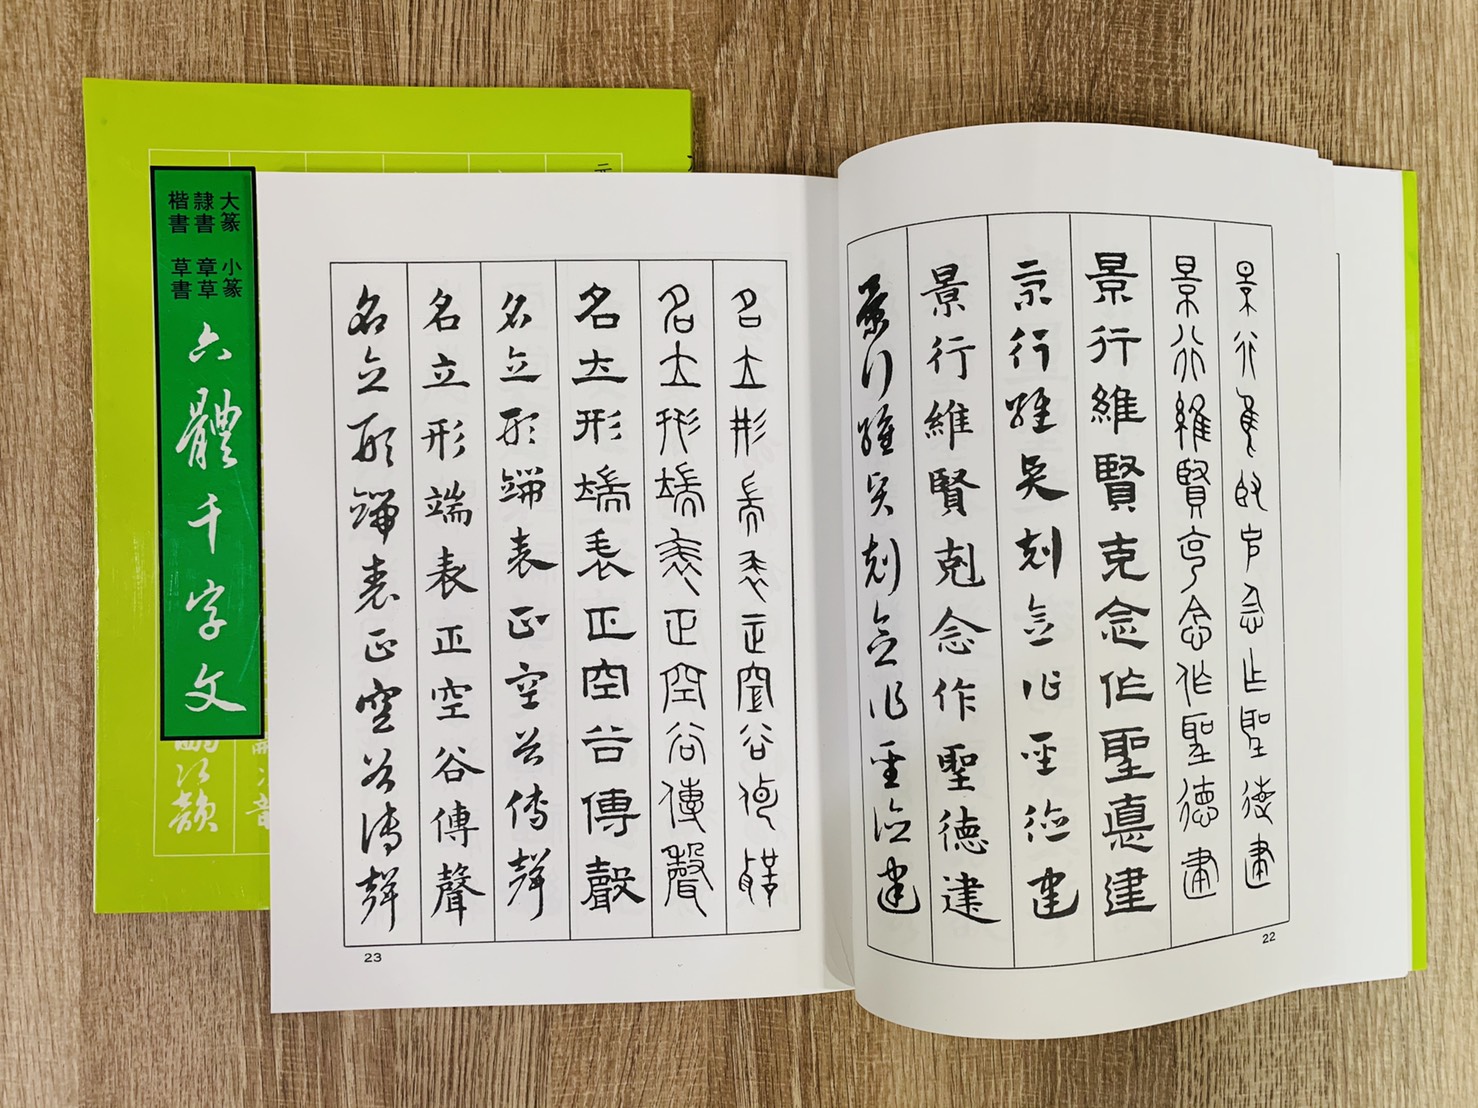 大篆 小篆
隸書 章草
楷書 草書
六體千字文
景行維賢克念作聖德建
景行維賢克念作聖德建
景行維賢克念作聖悳建
景行維賢剋念作聖德建
景行維賢剋念作聖德建
景行維賢剋念作聖德建
22
名立形端表正空谷傳聲
名立形端表正空谷傳聲
名立形端表正空谷傳聲
名立形端表正空谷傳聲
名立形端表正空谷傳聲
名立形端表正空谷傳聲
23